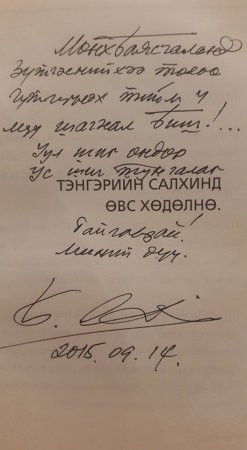 Мөнхбаясгаланд
Зүтгэснийхээ төлөө
тийм ч
муу шагнал биш!...
Уул шиг өндөр
Ус шиг тунгалаг
ТЭНГЭРИЙН САЛХИНД
ӨВС ХӨДӨЛНӨ.
Гайгалзай!
Миний дүү.
2015.09.14.